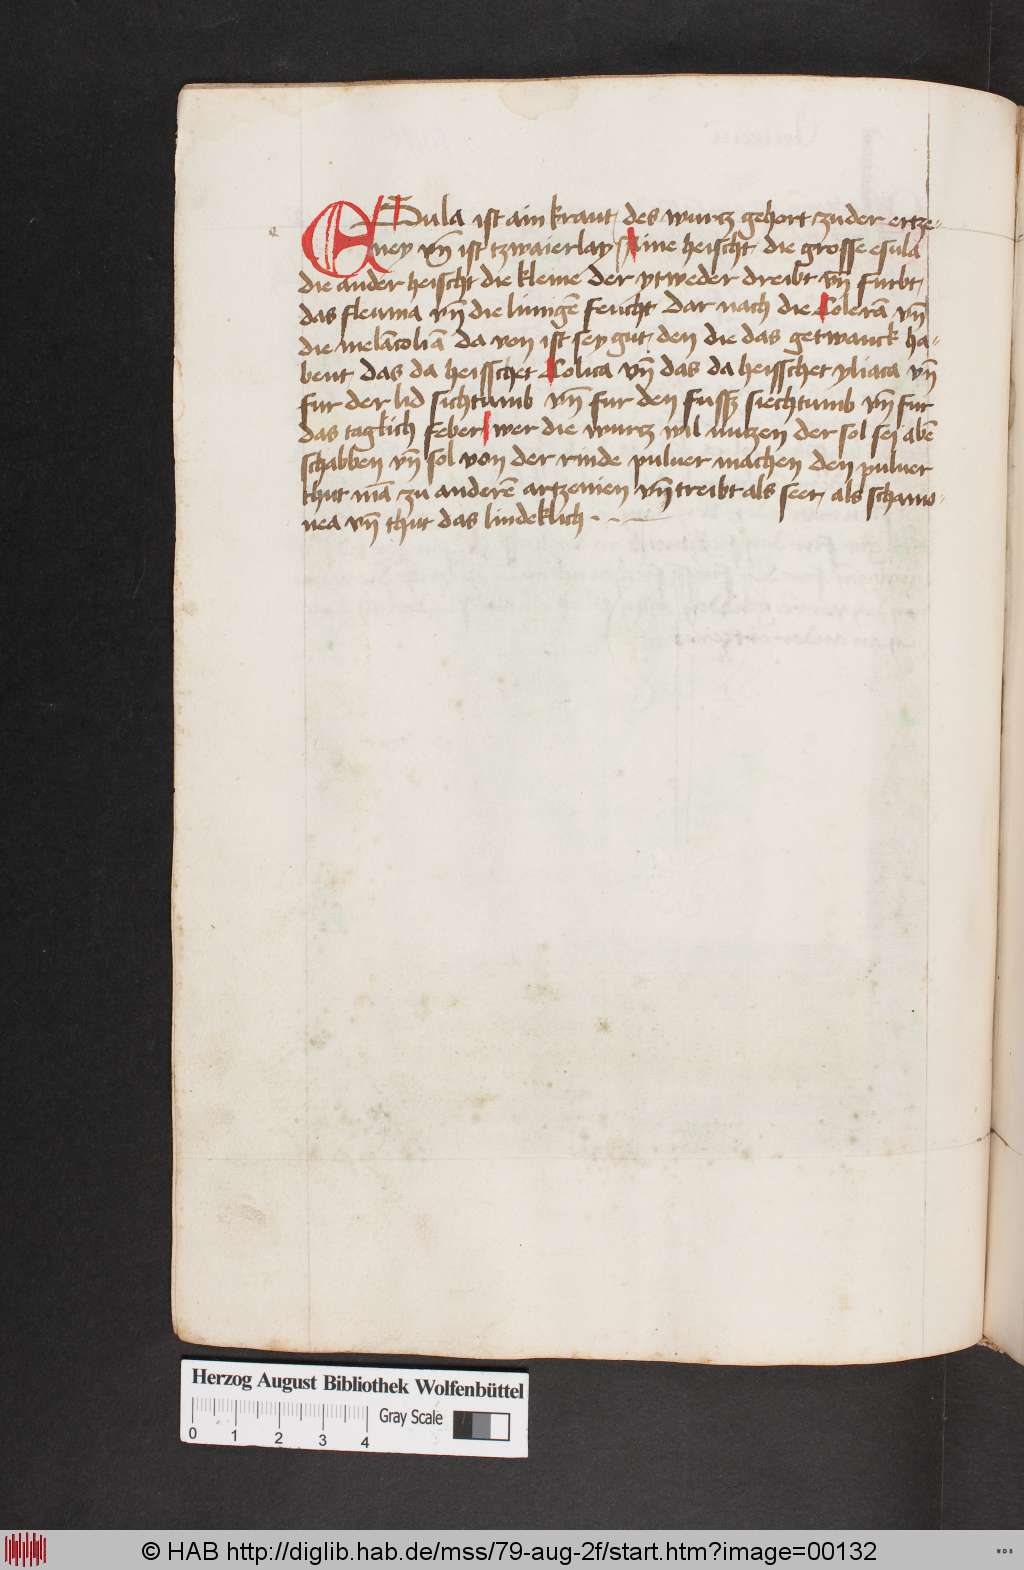 e
ESula ist ain kraut, des wurtz gehort zu der ertze-
ney vn̄ ist tzwaierlay / Aine heischt die grosse esula
die ander heischt die kleine der ytweder dreibt vn̄ furbt,
das fleuma vn̄ die limigē feucht Dar nach die Colerā vn̄
die melācoliā da von ist sey gut, den die das getwanck ha-
bent das da heisschet Colica vn̄ das da heisschet yliaca vn̄
fur der lid sichtumb vn̄ fur den fussz siechtumb vn̄ fur
das taglich feber wer die wurtz wil nutzen der sol sei abē
schabben vn̄ sol von der rinde puluer machen den puluer
thut mā zu anderē artzenien vn̄ treibt als seer, als schamo-
nea vn̄ thut das lindeklich . - . -
Herzog August Bibliothek Wolfenbüttel
Gray Scale
0 1 2 3 4
© HAB http://diglib.hab.de/mss/79-aug-2f/start.htm?image=00132
WDB